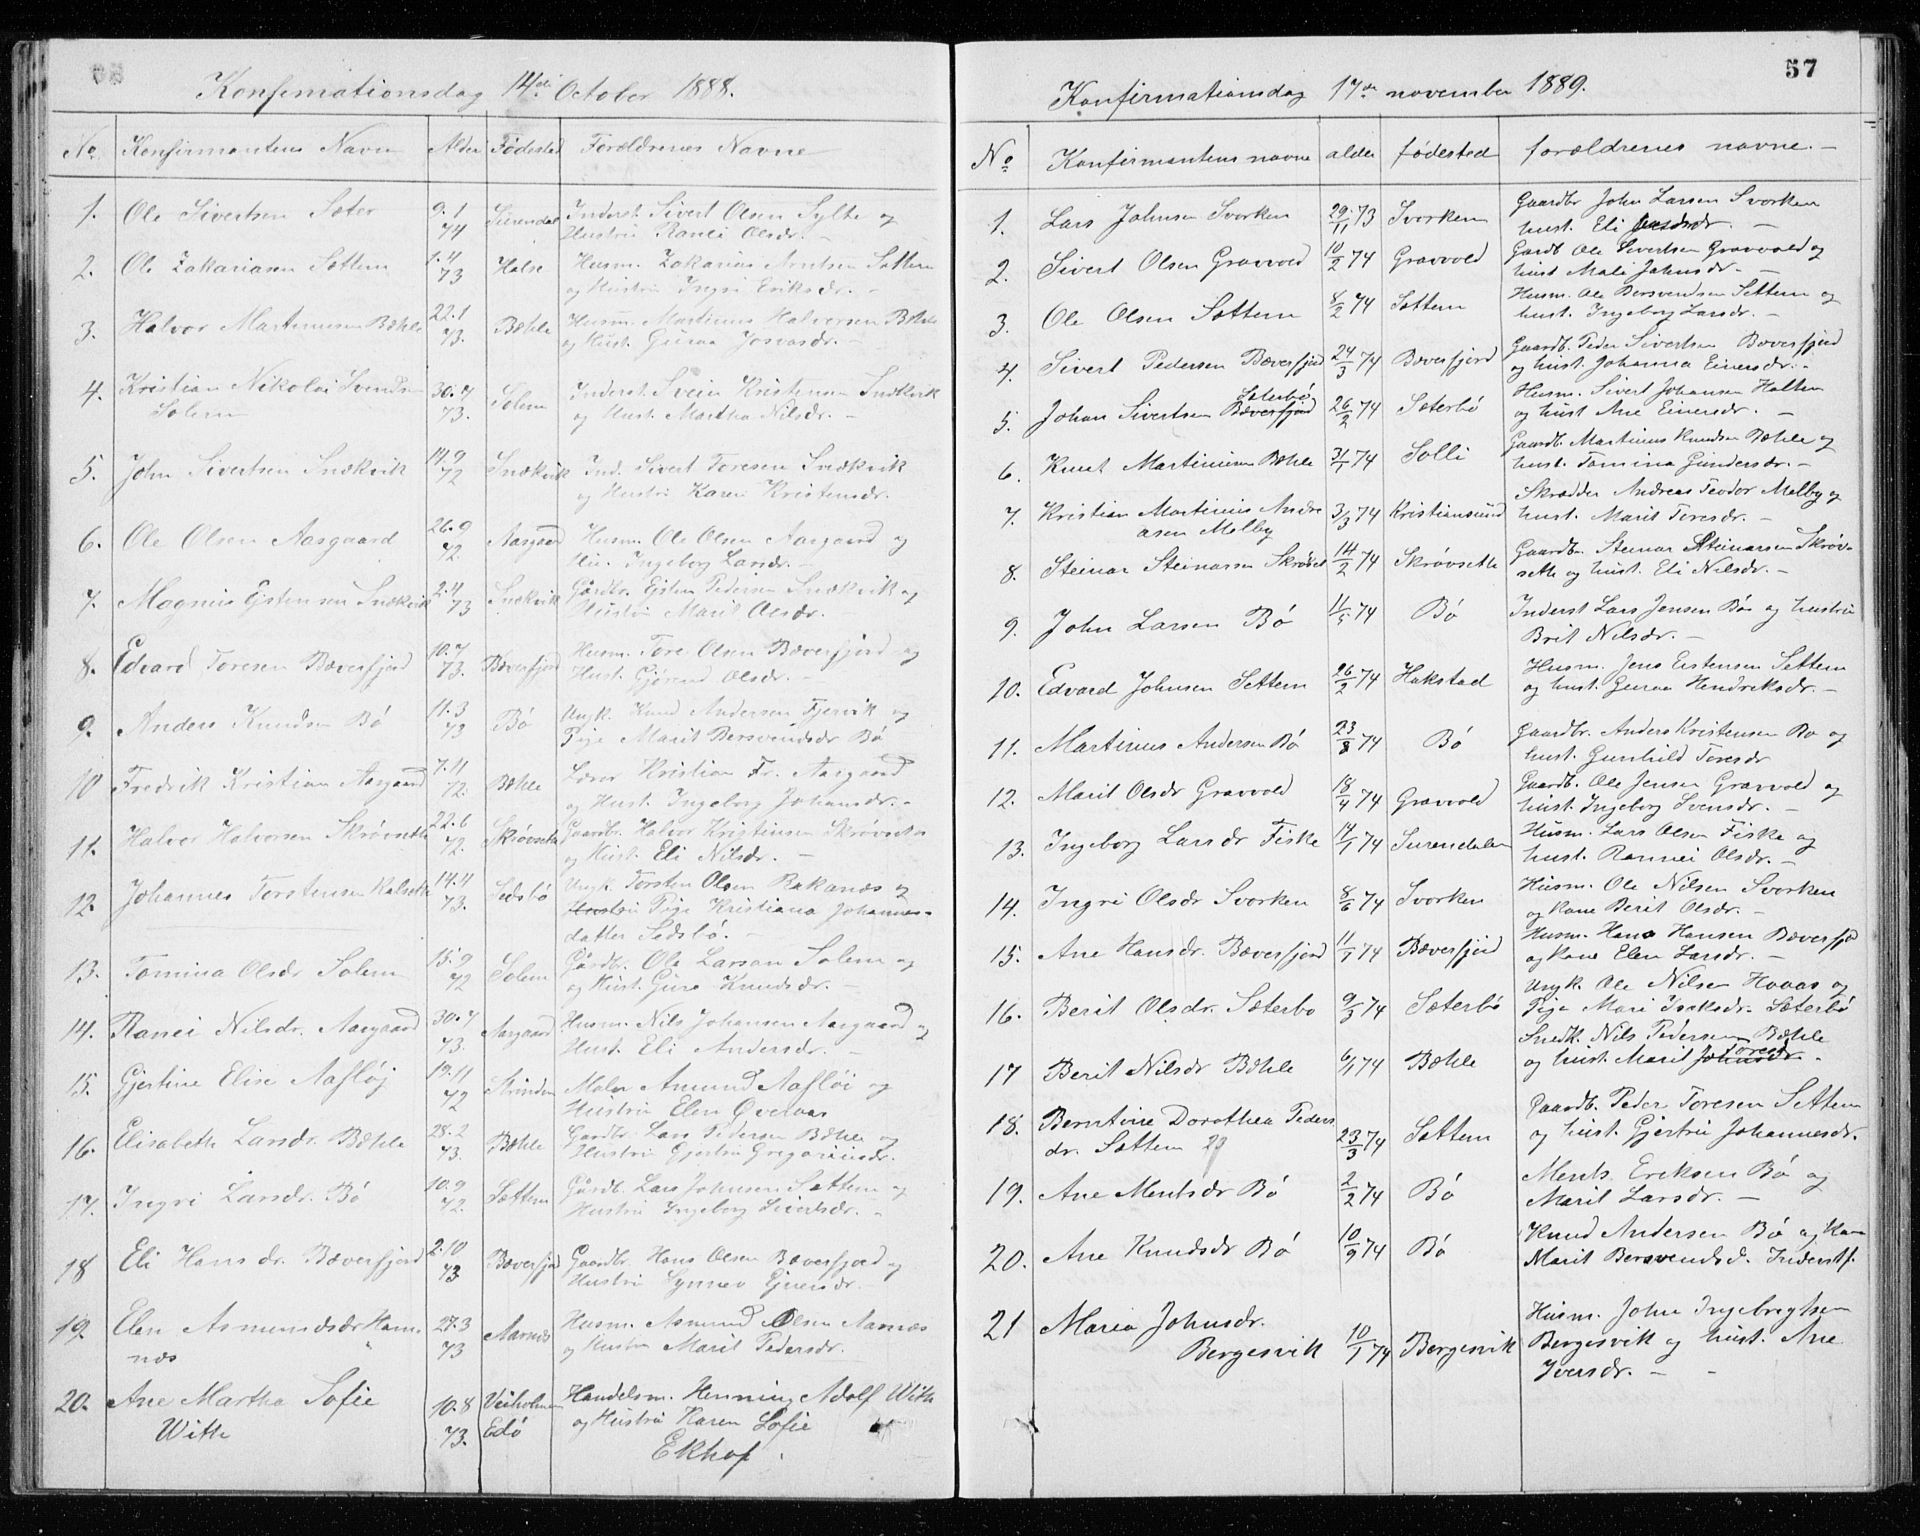 Konfirmationsdag 14de October 1888.
No. Konfirmantens Navn Alder Fødested Forældrenes Navne
1. Ole Sivertsen Sæter 9.1 74 Surendal Inderst Sivert Olsen Sylte og
Hustru Ranei Olsdr. –
2. Ole Zakariasen Settem 73 Halse Husm. Zakarias Settem
og Hustru Ingri Eriksdr. –
3. Halvor Martinusen Bæhle 22.1 73. Bæhle Husm. Martinus Halversen Bæhle
og Hust. Guraa Josvasdr. –
4. Kristian Nikolai Svendsen
Solem 30.7 73. Solem Inderst Svein Kristensen Snekvik
og Hust. Martha Nilsdr. –
5. John Sivertsen Snækvik 14.9 72 Snækvik Ind. Sivert Toresen Snækvik
og Hustru Karen Kristensdr. –
6. Ole Olsen Aasgaard 26.9 72. Aasgaard Husm. Ole Olsen Aasgaard og
Hu. Ingeborg Larsdr. –
7. Magnus Estensen Snekvik 2.4 73 Snekvik Gårdbr. Esten Pedersen Snækvik og
Hustru Marit Olsdr.
8. Edvard Toresen Bæverfjord 10.7 73. Bæverfjord Husm. Tore Olsen Bæverfjord og
Hust. Gjørund Olsdr. –
9. Anders Knudsen Bø 11.3 73 Bø Ungk. Knud Andersen Fjervik og
Pige Marit Bersvendsdr Bø
10 Fredrik Kristian Aasgaard 7.11 72. Bæhle Lærer Kristian Fr. Aasgaard
og Hust. Ingeborg Johansdr. –
11. Halvor Halvorsen Skrøvseth 22.6 72. Skrøvseth Gaardbr. Halvor Kristiansen Skrøvseth
og Hust. Eli Nilsdr. –
12. Johannes Torstensen Kalseth 14.4 73. Sedsbø Ungk. Torsten Olsen Rakanes og
Hustru Pige Kristiana Johannes-
datter Sedsbø. –
13. Tomina Olsdr Solem 15.9 72 Solem Gårdbr. Ole Larsen Solem og
og Hust. Guro Knudsdr. –
14. Ranei Nilsdr. Aasgaard 30.7 73. Aasgaard Husm. Nils Johansen Aasgaard og
Hust. Eli Andersdr. –
15. Gjertine Elise Aafløj 19.11 72 Strinden Maler Amund Aafløi og
Hustru Elen Øveraas
16. Elisabeth Larsdr. Bæhle 28.2 73. Bæhle Gardbr. Lars Pedersen Bæhle og
Hustru Gjertru Gregoriusdr.
17. Ingri Larsdr. Bø 10.9 72. Settem Gårdb. Lars Johnsen Sættem og
Hustru Ingeborg Sivertsdr. –
18 Eli Hansdr. Bæverfjord 2.10 73 Bæverfjord Gaardbr. Hans Olsen Bæverfjord og
Hustru Synnev Ejnersdr. –
19. Elen Asmundsdr Ham-
næs 27.3 73 Aarnæs Husm. Asmund Olsen Aarnæs
og Hustru Marit Pedersdr.
20. Ane Martha Sofie
Witte 10.8 73. Veiholmen
Edø Handelsm. Henning Adolf Witte
og Hustru Karen Sofie
Ekhof.
57
Konfirmationsdag 17de november 1889.
No Konfirmantens navne alder fødested forældrenes navne. –
1. Lars Johnsen Svorken 29/11 73 Svorken Gaardbr John Larsen Svorken
hust. Eli –
2. Sivert Olsen Gravvold 10/2 74 Gravvold Gardb Ole Sivertsen Gravvold og
hust Mali Johnsdr. –
3. Ole Olsen Sættem 8/2 74 Sættem Husm. Ole Bersvendsen Settem og
hust. Ingeborg Larsdr. –
4. Sivert Pedersen Bæverfjord 24/3 74 Bæverfjord Gaardb. Peder Sivertsen Bæverfjord
og hust. Johanna Einersdr. –
5. Johan Sivertsen Bæverfjord Sæterbø 26/2 74 Sæterbø Husm. Sivert Johansen Halten
og hust Ane Einersdr. –
6. Knut Martinusen Bæhle 31/1 74 Solli Gaardb. Martinus Knudsen Bæhle og
hust. Tomina Gundersdr. –
7. Kristian Martinius Andre
asen Melby 3/3 74 Kristiansund Skrædder Andreas Teodor Melby og
hust. Marit Toresdr. –
8. Steinar Steinarsen Skrøvset 14/2 74 Skrøvseth Gaardbr. Steinar Steinarsen Skrøv-
seth og hust. Eli Nilsdr. –
9. John Larsen Bø 11/5 74 Bø Inderst Lars Jensen Bø og hustru
Brit Nilsdr. –
10. Edvard Johnsen Settem 26/2 74 Hakstad Husm. Jens Estensen Settem
og hust. Guraa Hendriksdr. –
11. Martinus Andersen Bø 23/8 74 Bø Gaardbr. Anders Kristensen Bø og
hust. Gunhild Toresdr
12. Marit Olsdr Gravvold 18/4 74 Gravvold Gaardb. Ole Jensen Gravvold og
hust. Ingeborg Svensdr. –
13. Ingeborg Larsdr Fiske 14/1 74 Surendalen Husm. Lars Olsen Fiske og
hust. Rannei Olsdr. –
14. Ingri Olsdr Svorken 8/6 74 Svorken Husm. Ole Nilsen Svorken
og kone Berit Olsdr. –
15. Ane Hansdr. Bæverfjord 11/1 74 Bæverfjord Husm. Hans Hansen Bæverfjd
og kone Elen Larsdr. –
16. Berit Olsdr. Sæterbø 9/3 74 Sæterbø Ungk. Ole Nilsen Hovas og
Pige Mari Isaksdr. Sæterbø
17 Berit Nilsdr Bæhle 6/1 74 Bæhle Snedk. Nils Pedersen Bæhle
og hust. Marit Johnsdr Toresdr. –
18. Berntine Dorothea Peders
dr. Sættem 23 23/3 74 Sættem Gaardb. Peder Toresen Settem
og hust. Gjertru Johannesdr.
19. Ane Mentsdr Bø 2/2 74 Bø Ments. Eriksen Bø og
Marit Larsdr. –
20. Ane Knudsdr Bø 10/9 74 Bø Knud Andersen Bø og Kone
Marit Bersvendsd. Inderstf.
21 Maria Johnsdr.
Bergesvik 10/1 74 Bergesvik Husm. John Ingebregtsen
Bergesvik og hust. Ane
Iversdr. – –